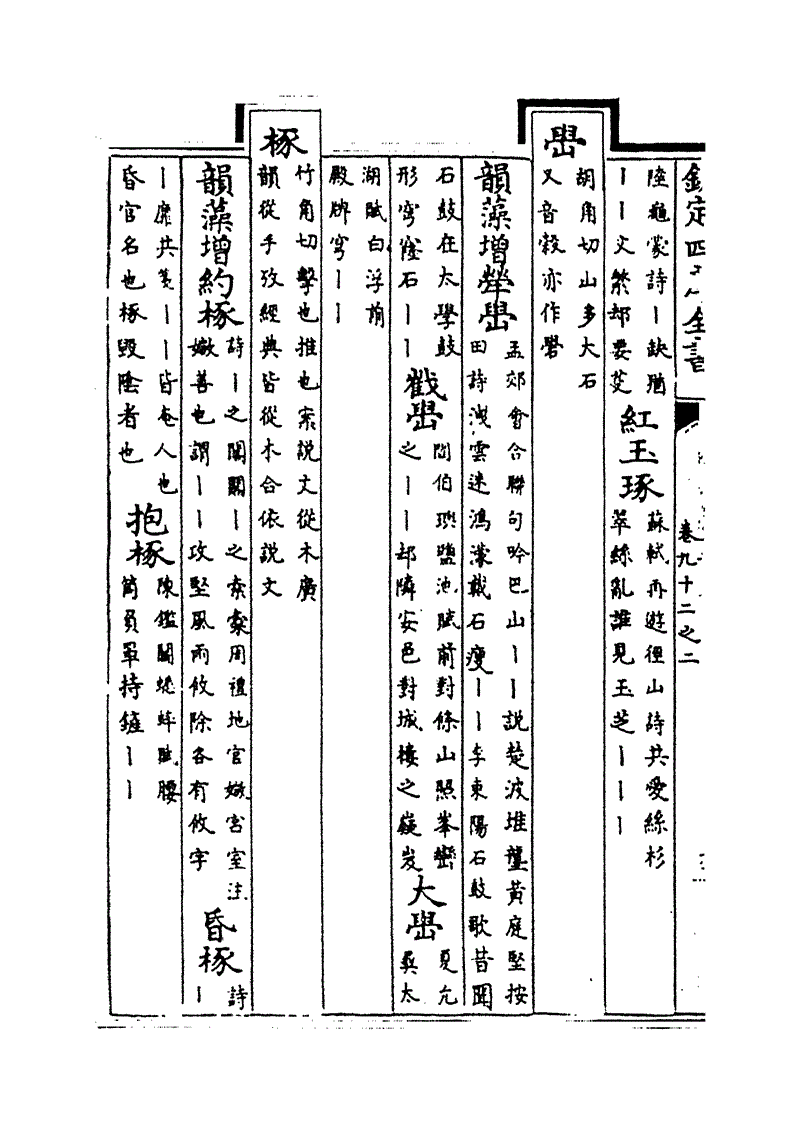 欽定四庫全書
卷九十二之二
陸龜蒙詩丨缺猶
丨丨文縈却要芟
紅玉琢
蘇軾再遊徑山詩共愛絲杉
萃絲亂誰見玉芝丨丨丨
嶨
胡角切山多大石
又音縠亦作礐
韻藻增
犖嶨
孟郊會合聯句吟巴山丨丨說楚波堆壟黃庭堅按
田詩洩雲迷鴻濛戴石瘦丨丨李東陽石鼓歌昔聞
石鼓在太學鼓
形穹窿石丨丨
戳嶨
閻伯璵鹽池賦前對條山照峯巒
之丨丨却隣安邑對城樓之巍岌
大嶨
夏允彝太
湖賦白浮前
殿牌穹丨丨
椓
竹角切擊也推也案說文從木廣
韻從手攷經典皆從木合依說文
韻藻增
約椓
詩丨之閣閣丨之橐橐周禮地官媺宮室注
媺善也謂丨丨攻堅風雨攸除各有攸字
昏椓
詩丨
丨靡共箋丨丨皆奄人也
昏官名也椓毀陰者也
抱椓
陳鑑鬬蟋蟀賦腰
筒負罩持鏟丨丨